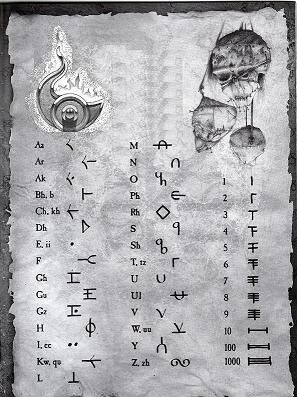 Aa
Ar
Ak
Bh, b
Ch, kh
Dh
E, ii
F
Gh
Gu
Gz
H
I, ee
Kw, qu
L
M
N
O
Ph
Rh
S
Sh
T, tz
U
Ul
V
W, uu
Y
Z, zh
1
2
3
4
5
6
7
8
9
10
100
1000